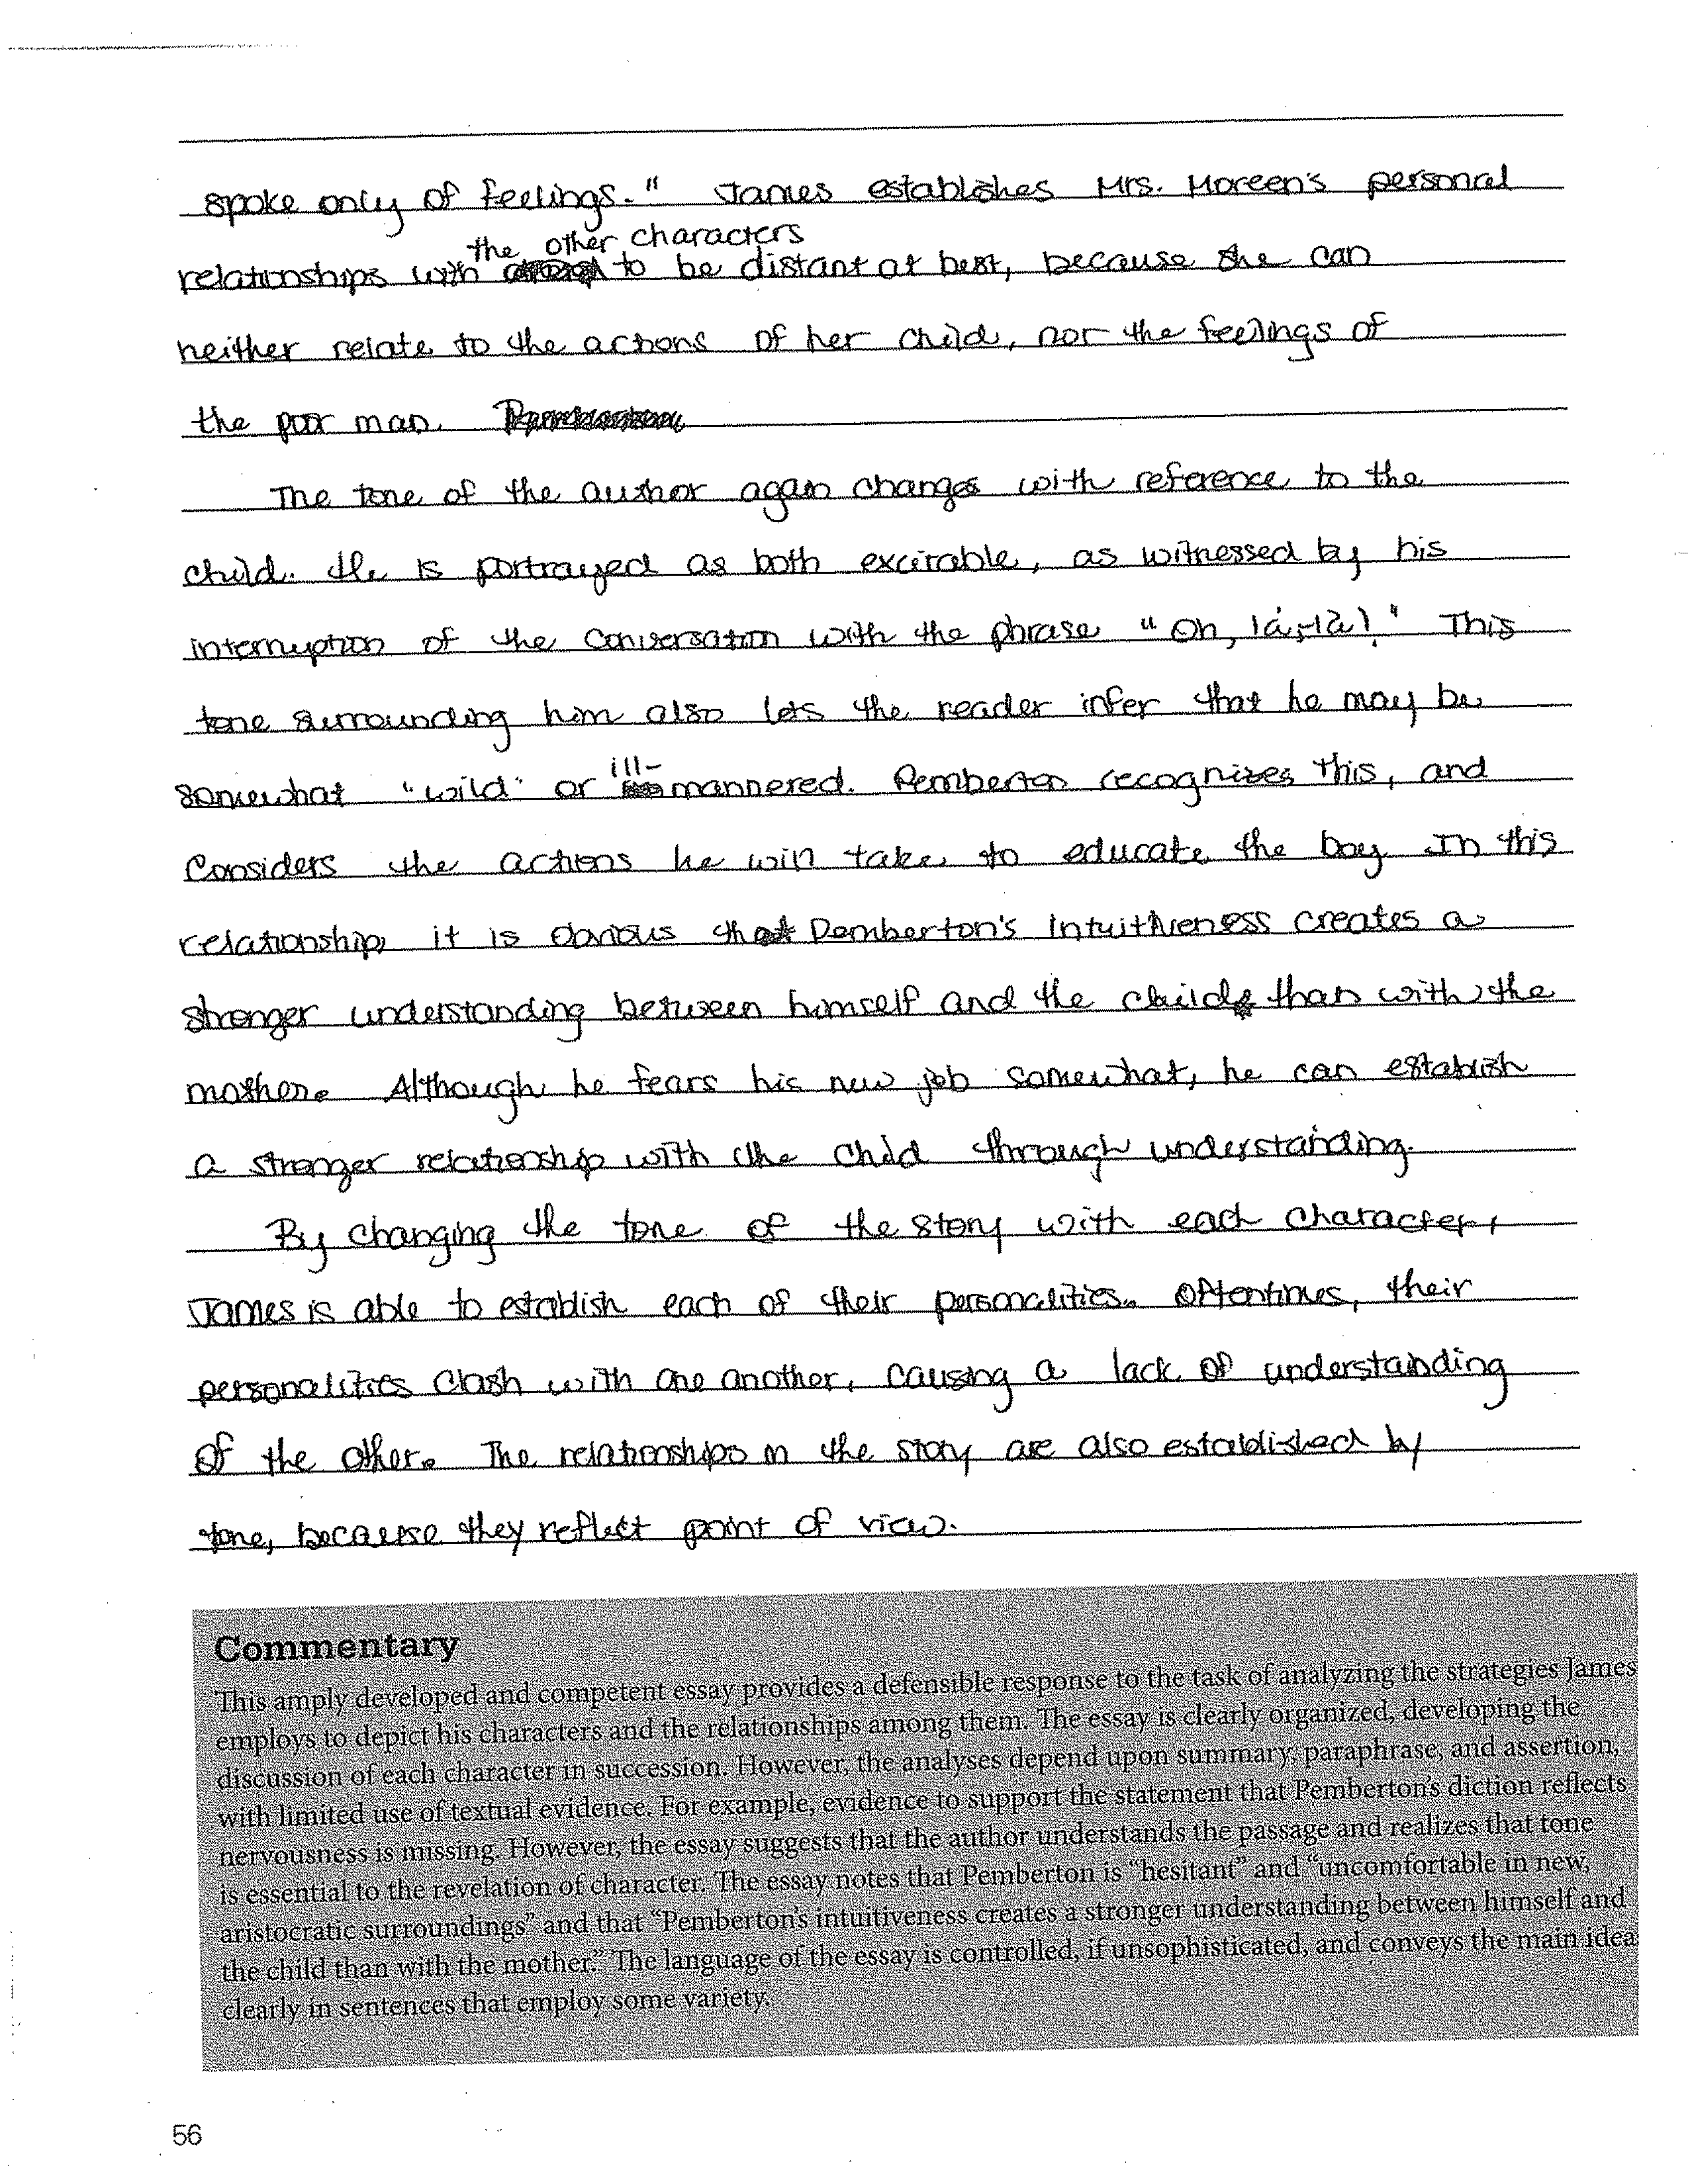 spoke only of feelings." James establishes Mrs. Moreen's personal
the other characters
relationships with to be distant at best, because she can
neither relate to the actions of her child, nor the feelings of
the poor man.
The tone of the author again changes with reference to the
child. He is portrayed as both excitable, as witnessed by his
interruption of the conversation with the phrase "Oh, là-là!" This
tone surrounding him also lets the reader infer that he may be
ill-
somewhat "wild" or mannered. Pemberton recognizes this, and
considers the actions he will take to educate the boy. In this
relationship, it is obvious that Pemberton's intuitiveness creates a
stronger understanding between himself and the child than with the
mother. Although he fears his new job somewhat, he can establish
a stronger relationship with the child through understanding.
By changing the tone of the story with each character,
James is able to establish each of their personalities. Oftentimes, their
personalities clash with one another, causing a lack of understanding
of the other. The relationships in the story are also established by
tone, because they reflect point of view.
Commentary
This amply developed and competent essay provides a defensible response to the task of analyzing the strategies James
employs to depict his characters and the relationships among them. The essay is clearly organized, developing the
discussion of each character in succession. However, the analyses depend upon summary, paraphrase, and assertion,
with limited use of textual evidence. For example, evidence to support the statement that Pemberton's diction reflects
nervousness is missing. However, the essay suggests that the author understands the passage and realizes that tone
is essential to the revelation of character. The essay notes that Pemberton is "hesitant" and "uncomfortable in new,
aristocratic surroundings" and that "Pemberton's intuitiveness creates a stronger understanding between himself and
the child than with the mother." The language of the essay is controlled, if unsophisticated, and conveys the main idea
clearly in sentences that employ some variety.
56